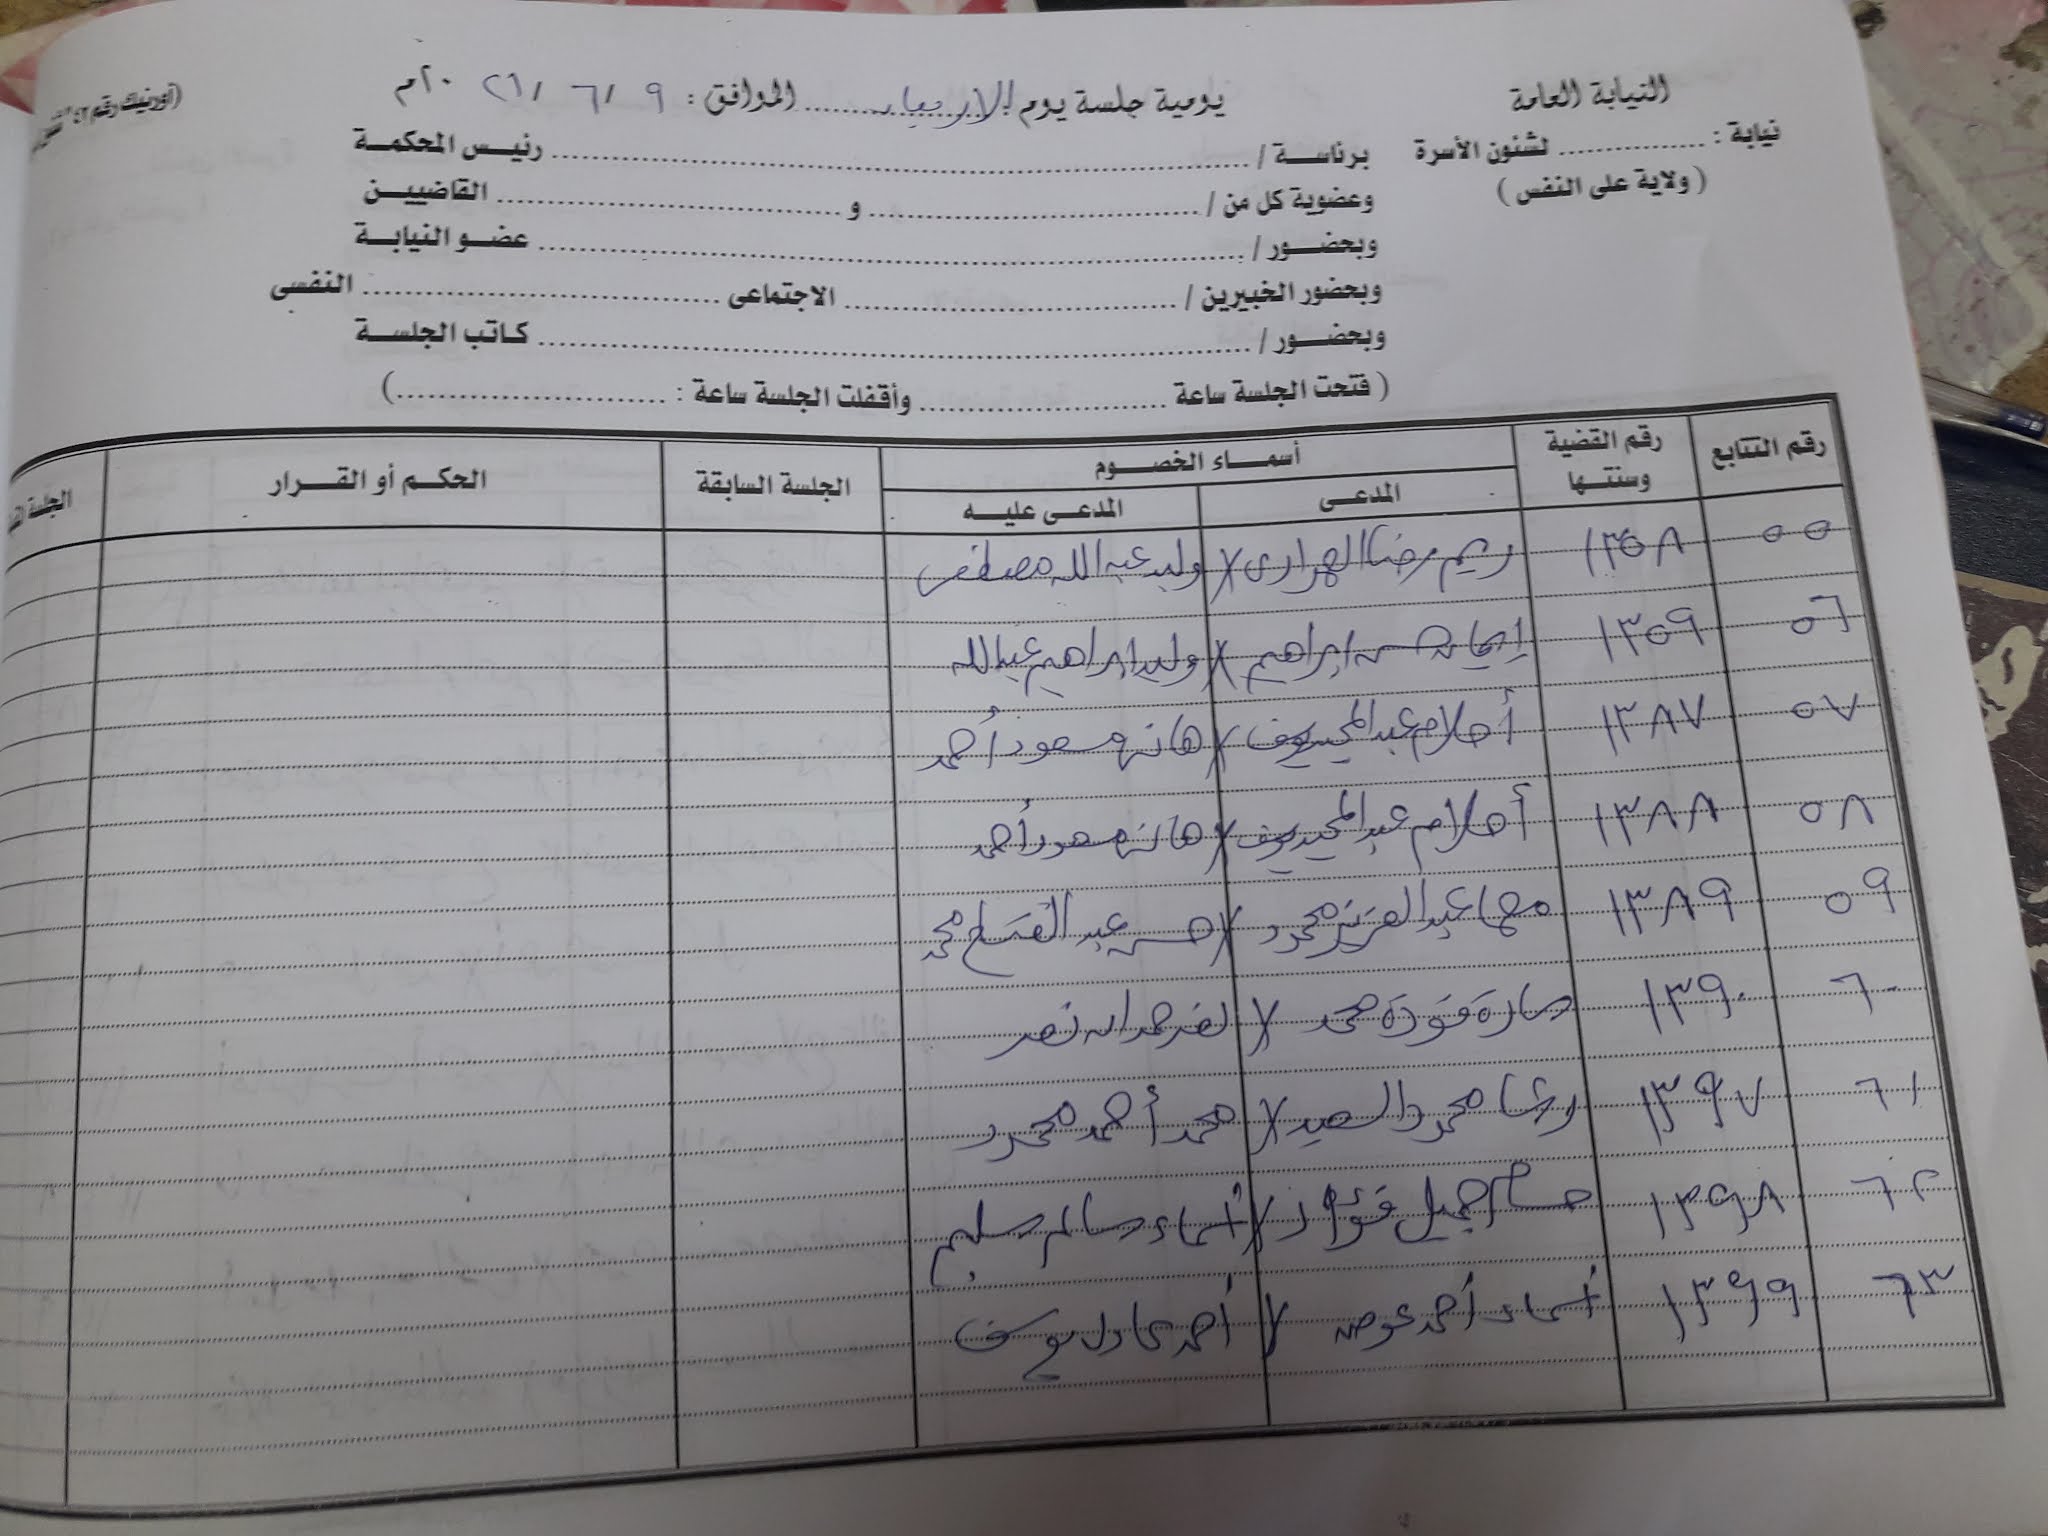 النيابة العامة
نيابة : ............... لشئون الأسرة
( ولاية على النفس )
يومية جلسة يوم الاربعاء الموافق : ٩ / ٦ / ٢٠٢١م
(اورنيك رقم ٤٢
برئاسة / ............... رئيس المحكمة
وعضوية كل من / ............... و ............... القاضيين
وبحضور / ............... عضو النيابة
وبحضور الخبيرين / ............... الاجتماعى ............... النفسى
وبحضور / ............... كاتب الجلسة
( فتحت الجلسة ساعة ............... وأقفلت الجلسة ساعة : ............... )
رقم التتابع | رقم القضية وسنتها | أسماء الخصوم | الجلسة السابقة | الحكم أو القرار | الجلسة
المدعى | المدعى عليه
٥٥ ١٣٥٨ ريم رضا الهوارى / وليد عبد الله مصطفى
٥٦ ١٣٥٩ إيمان حسن ابراهيم / وليد ابراهيم عبد الله
٥٧ ١٣٨٧ أحلام عبد المجيد يوسف / هانى مسعود أحمد
٥٨ ١٣٨٨ أحلام عبد المجيد يوسف / هانى مسعود أحمد
٥٩ ١٣٨٩ مها عبد العزيز محمود / حسن عبد الفتاح محمد
٦٠ ١٣٩٠ سارة فودة محمد / نصر
٦١ ١٣٩٧ رشا محمود السعيد / محمد أحمد محمود
٦٢ ١٣٩٨ حسام جميل فؤاد / أسماء سالم سليم
٦٣ ١٣٩٩ أسماء أحمد عوض / أحمد عادل يوسف